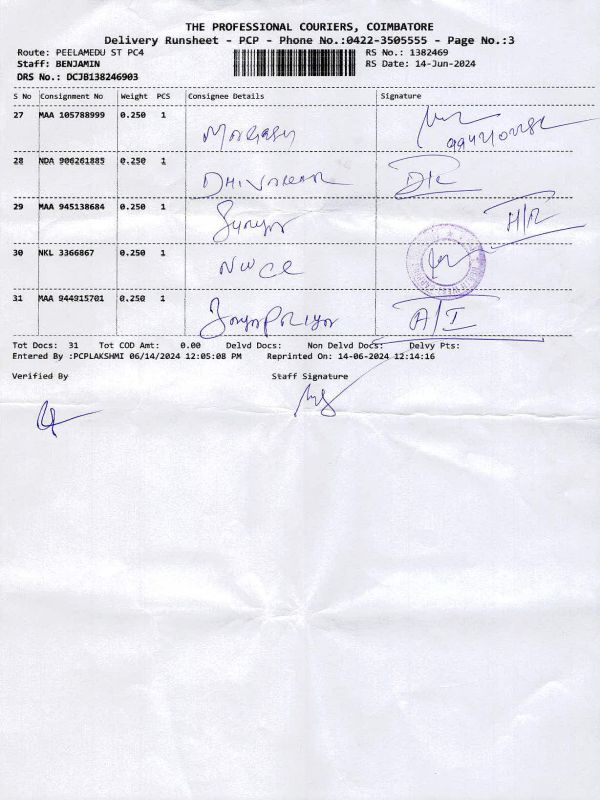 THE PROFESSIONAL COURIERS, COIMBATORE
Delivery Runsheet - PCP - Phone No.:0422-3505555 - Page No.:3
Route: PEELAMEDU ST PC4 RS No.: 1382469
Staff: BENJAMIN RS Date: 14-Jun-2024
DRS No.: DCJB138246903
S No Consignment No Weight PCS Consignee Details Signature
27 MAA 105788999 0.250 1
28 NDA 906261885 0.250 1 DHIVAKAR
29 MAA 945138684 0.250 1 Surya H/R
30 NKL 3366867 0.250 1
31 MAA 944915701 0.250 1 A/I
Tot Docs: 31 Tot COD Amt: 0.00 Delvd Docs: Non Delvd Docs: Delvy Pts:
Entered By :PCPLAKSHMI 06/14/2024 12:05:08 PM Reprinted On: 14-06-2024 12:14:16
Verified By Staff Signature